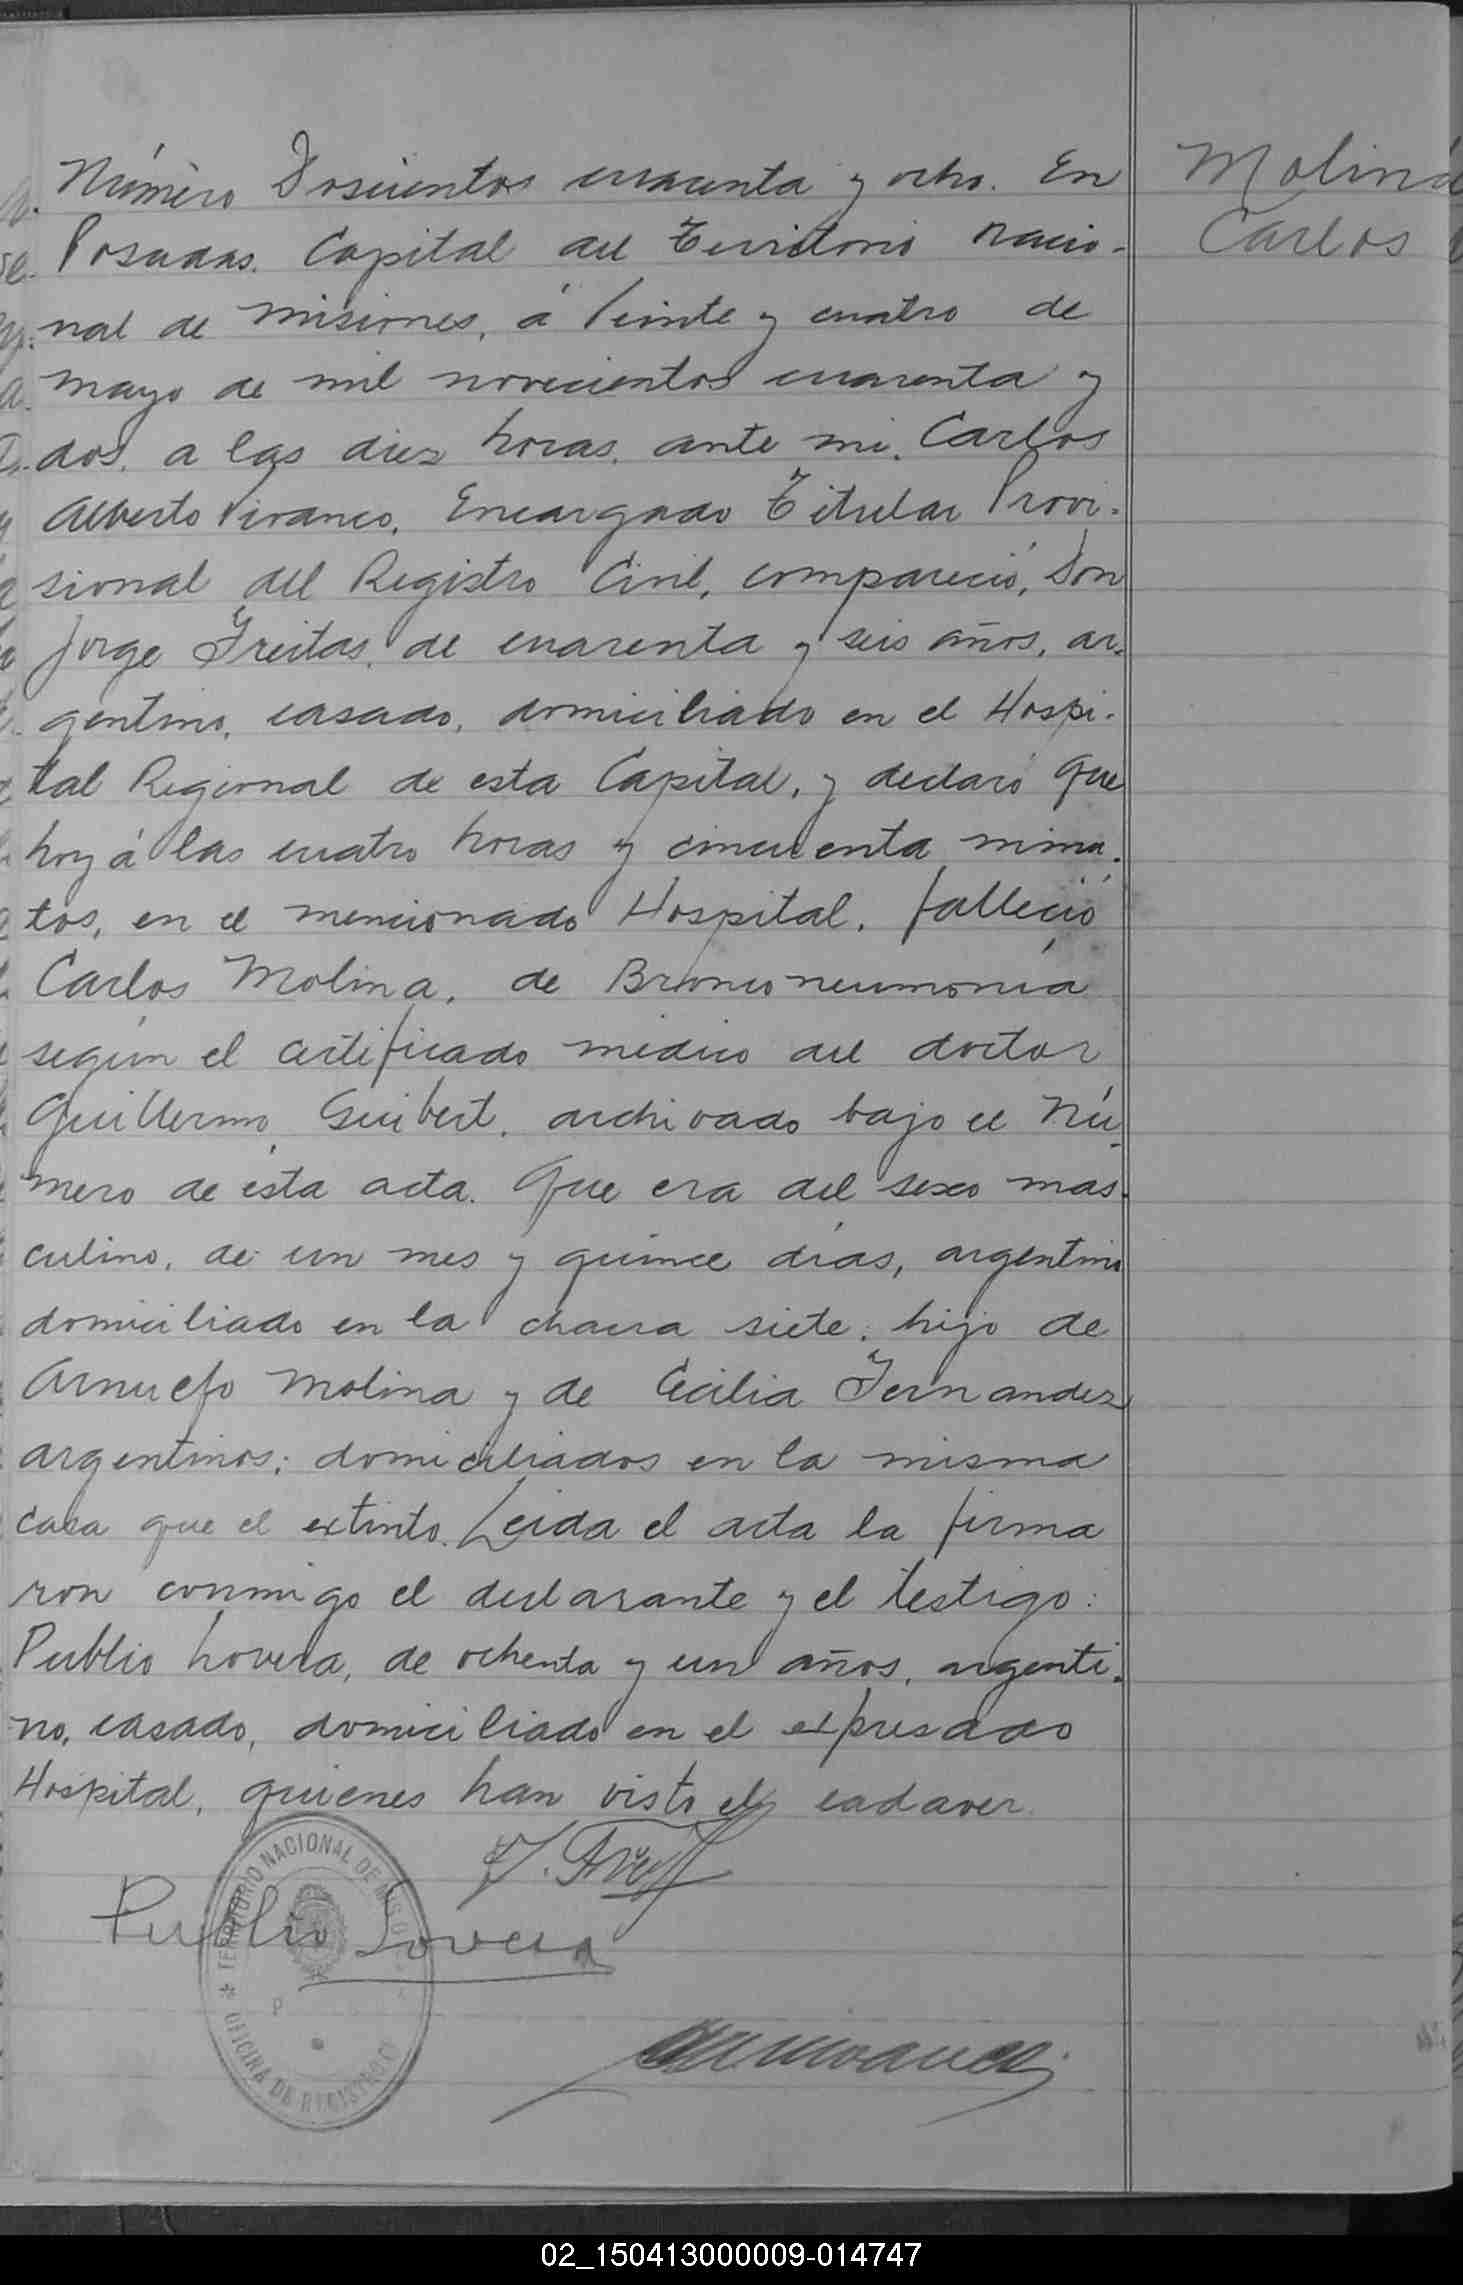 Número Doscientos cuarenta y ocho. En
Posadas. Capital del Territorio Nacio-
nal de Misiones, á Veinte y cuatro de
Mayo de mil novecientos cuarenta y
dos, a las diez horas, ante mi, Carlos
Alberto Vivanco, Encargado Titular Provi-
sional del Registro Civil, compareció, Don
Jorge Freitas, de cuarenta y seis años, ar-
gentino, casado, domiciliado en el Hospi-
tal Regional de esta Capital, y declaró que
hoy á las cuatro horas y cincuenta minu-
tos, en el mencionado Hospital, falleció
Carlos Molina, de Bronconeumonía
según el certificado médico del doctor
Guillermo Guibert, archivado bajo el Nú-
mero de esta acta. Que era del sexo mas-
culino, de un mes y quince días, argentino
domiciliado en la chacra siete, hijo de
Arnulfo Molina y de Cecilia Fernandez
argentinos; domiciliados en la misma
casa que el extinto. Leida el acta la firma
ron conmigo el declarante y el testigo:
Publio Lovera, de ochenta y un años, argenti-
no, casado, domiciliado en el expresado
Hospital, quienes han visto el cadaver.
Publio Lovera
TERRITORIO NACIONAL DE MISIONES
OFICINA DE REGISTRO
Molina
Carlos
02_150413000009-014747